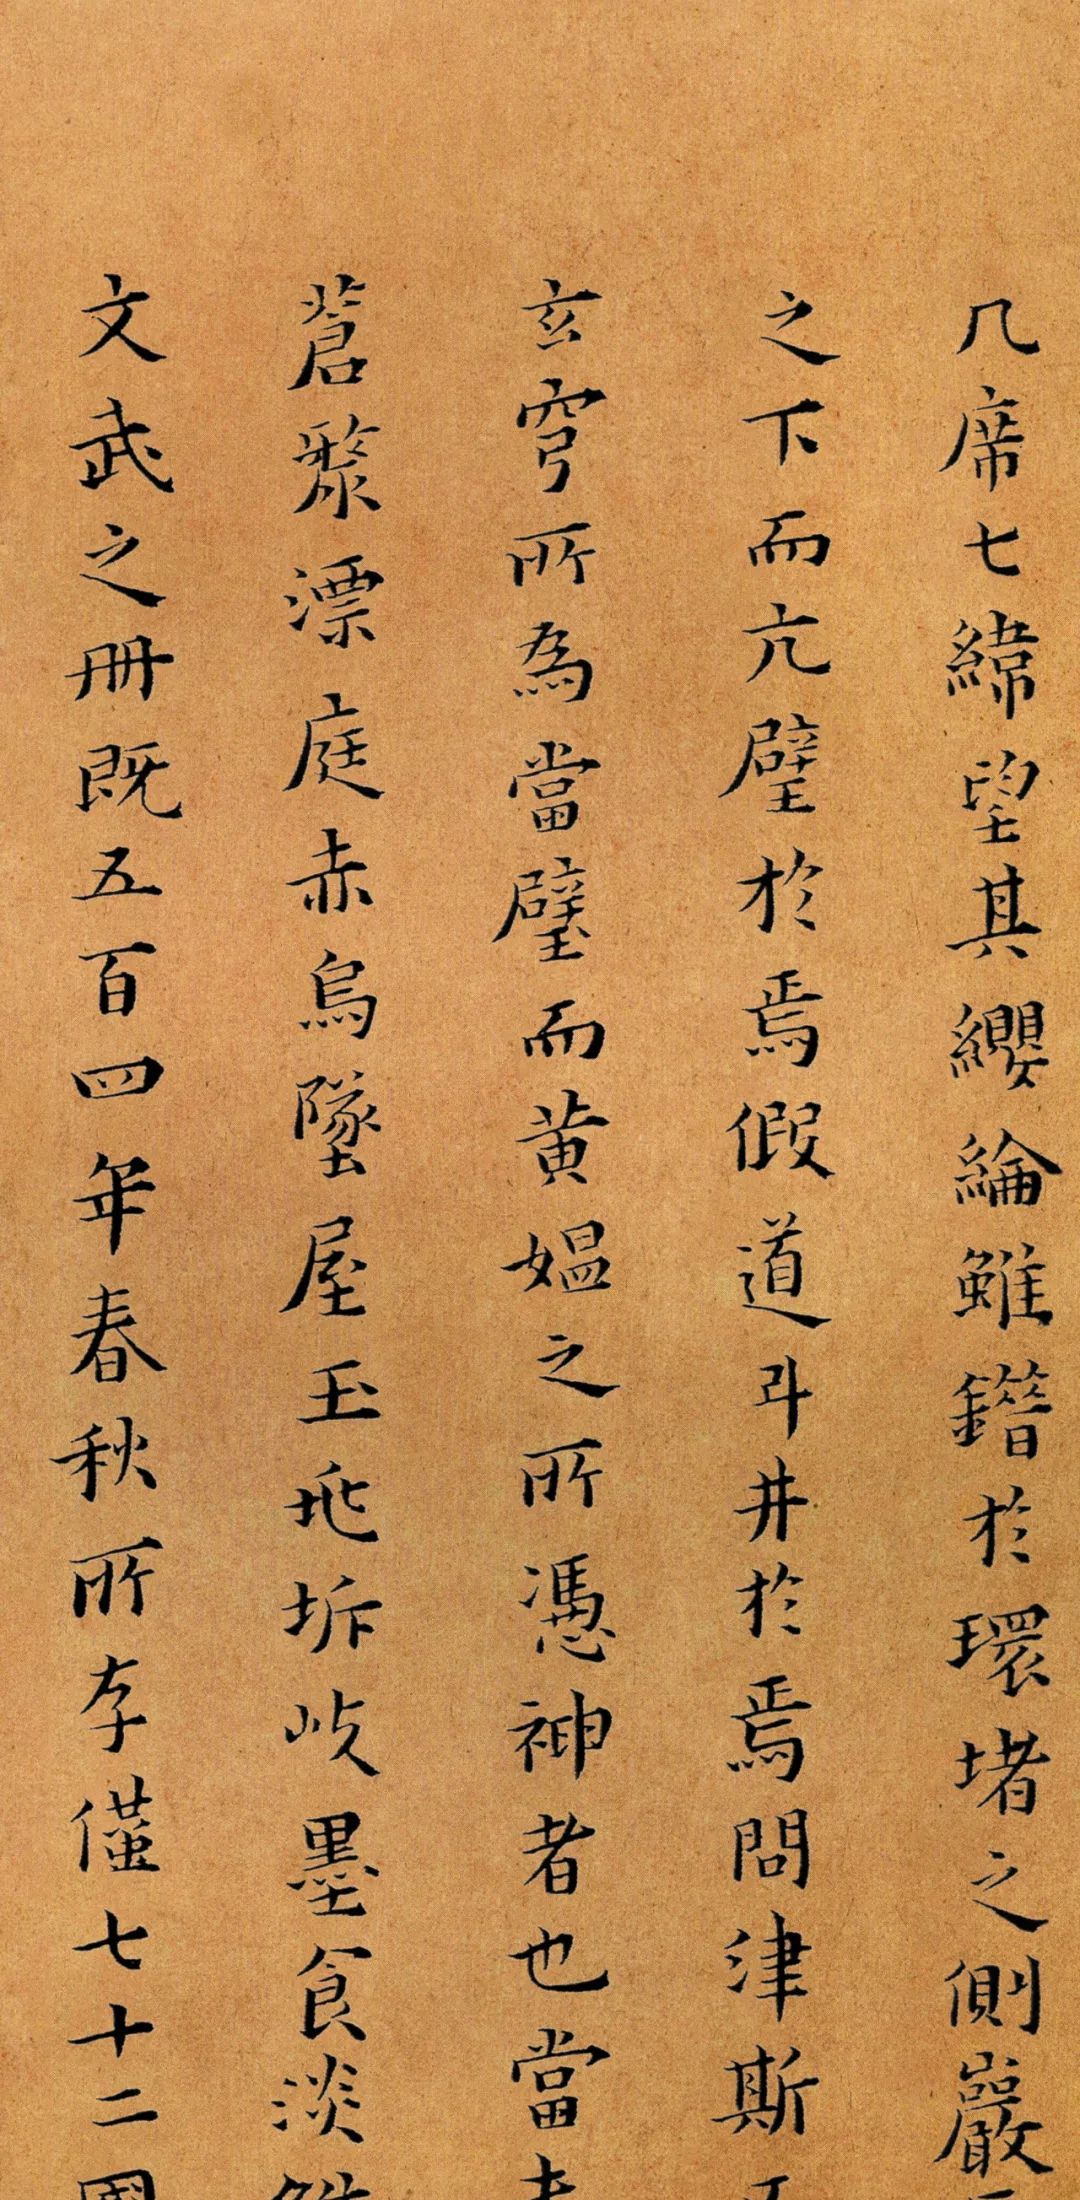 几席七緯望其纓綸雖鐕於環堵之側巖
之下而亢壁於焉假道斗井於焉問津斯
玄穹所為當壁而黃媪之所憑神者也當
蒼聚漂庭赤烏墜屋玉兆坼岐墨食淡
文武之冊既五百四年春秋所存僅七十二國